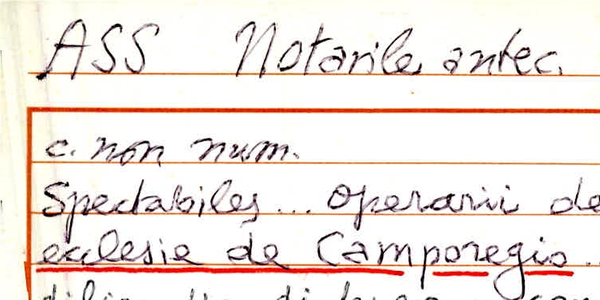 ASS Notarile antec.
c. non num.
Spectabiles... operarii de
ecclesie de Camporegio